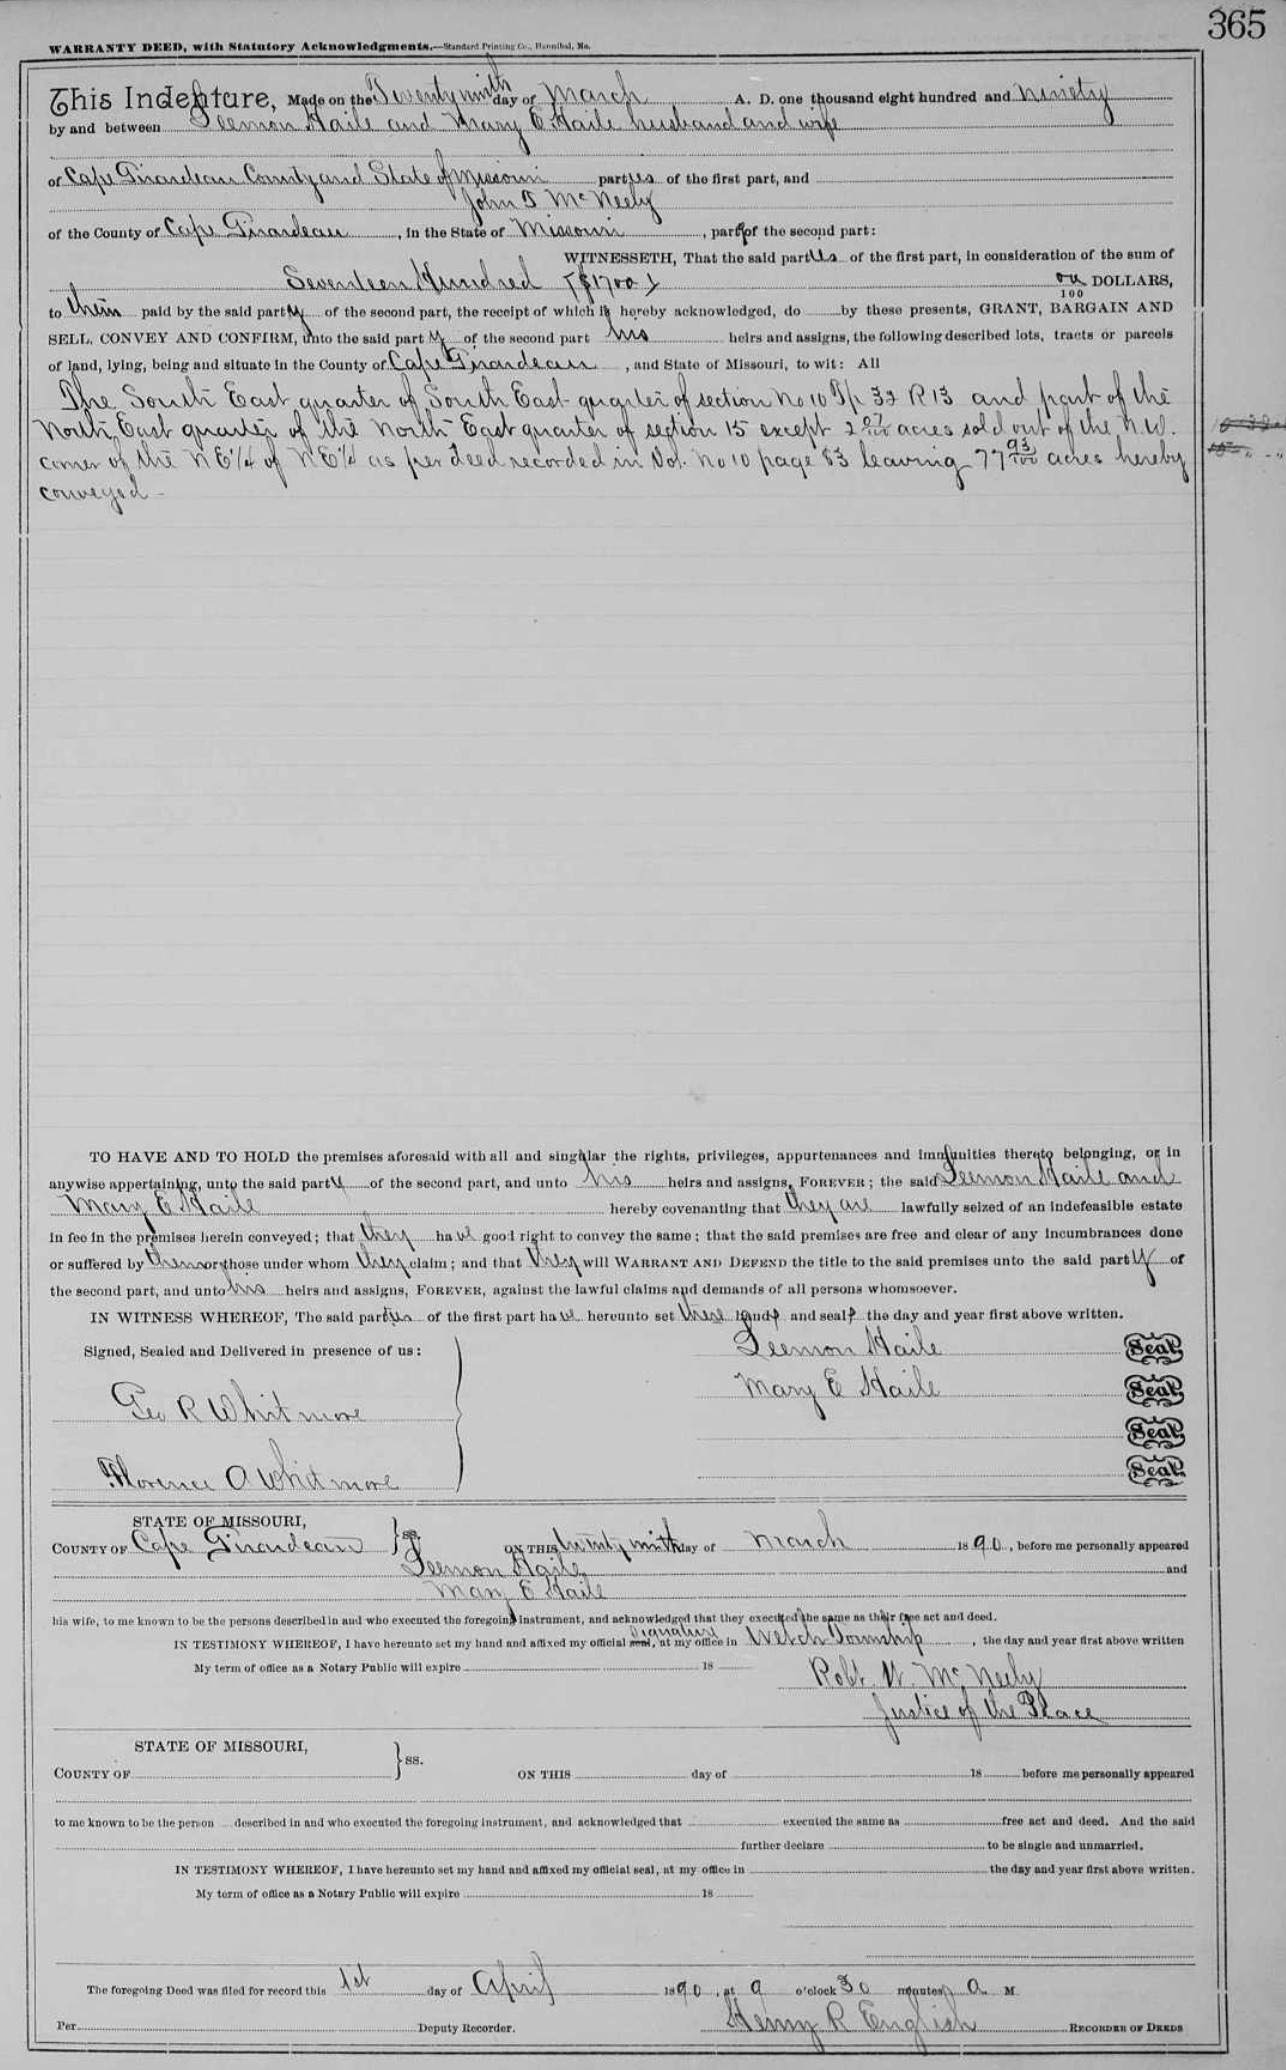 365
WARRANTY DEED, with Statutory Acknowledgments.—Standard Printing Co., Hannibal, Mo.
This Indenture, Made on the Twenty ninth day of March A. D. one thousand eight hundred and ninety
by and between Leemon Haile and Mary E Haile husband and wife
of Cape Girardeau County and State of Missouri parties of the first part, and
John T McNeely
of the County of Cape Girardeau, in the State of Missouri, party of the second part:
WITNESSETH, That the said parties of the first part, in consideration of the sum of
Seventeen Hundred ($1700) no/100 DOLLARS,
to them paid by the said party of the second part, the receipt of which is hereby acknowledged, do by these presents, GRANT, BARGAIN AND
SELL, CONVEY AND CONFIRM, unto the said party of the second part his heirs and assigns, the following described lots, tracts or parcels
of land, lying, being and situate in the County of Cape Girardeau, and State of Missouri, to wit: All
The South East quarter of South East quarter of section No 10 Tp 32 R 13 and part of the
North East quarter of the North East quarter of section 15 except 2 07/100 acres sold out of the N.W.
corner of the N E 1/4 of N E 1/4 as per deed recorded in Vol. No 10 page 83 leaving 77 93/100 acres hereby
conveyed –
TO HAVE AND TO HOLD the premises aforesaid with all and singular the rights, privileges, appurtenances and immunities thereto belonging, or in
anywise appertaining, unto the said party of the second part, and unto his heirs and assigns, FOREVER; the said Leemon Haile and
Mary E Haile hereby covenanting that they are lawfully seized of an indefeasible estate
in fee in the premises herein conveyed; that they have good right to convey the same; that the said premises are free and clear of any incumbrances done
or suffered by them or those under whom they claim; and that they will WARRANT AND DEFEND the title to the said premises unto the said party of
the second part, and unto his heirs and assigns, FOREVER, against the lawful claims and demands of all persons whomsoever.
IN WITNESS WHEREOF, The said parties of the first part have hereunto set there hands and seals the day and year first above written.
Signed, Sealed and Delivered in presence of us:
Leemon Haile Seal
Mary E Haile Seal
Geo R Whitmore
Seal
Florence O Whitmore
Seal
STATE OF MISSOURI,
COUNTY OF Cape Girardeau } ss. ON THIS twenty ninth day of March 1890, before me personally appeared
Leemon Haile and
Mary E Haile
his wife, to me known to be the persons described in and who executed the foregoing instrument, and acknowledged that they executed the same as their free act and deed.
signature
IN TESTIMONY WHEREOF, I have hereunto set my hand and affixed my official seal, at my office in Welch Township, the day and year first above written
My term of office as a Notary Public will expire 18
Robt. W. McNeely
Justice of the Peace
STATE OF MISSOURI,
COUNTY OF } ss. ON THIS day of 18 before me personally appeared
to me known to be the person described in and who executed the foregoing instrument, and acknowledged that executed the same as free act and deed. And the said
further declare to be single and unmarried.
IN TESTIMONY WHEREOF, I have hereunto set my hand and affixed my official seal, at my office in the day and year first above written.
My term of office as a Notary Public will expire 18
The foregoing Deed was filed for record this 1st day of April 1890, at 9 o'clock 30 minutes A M.
Per Deputy Recorder. Henry R English RECORDER OF DEEDS